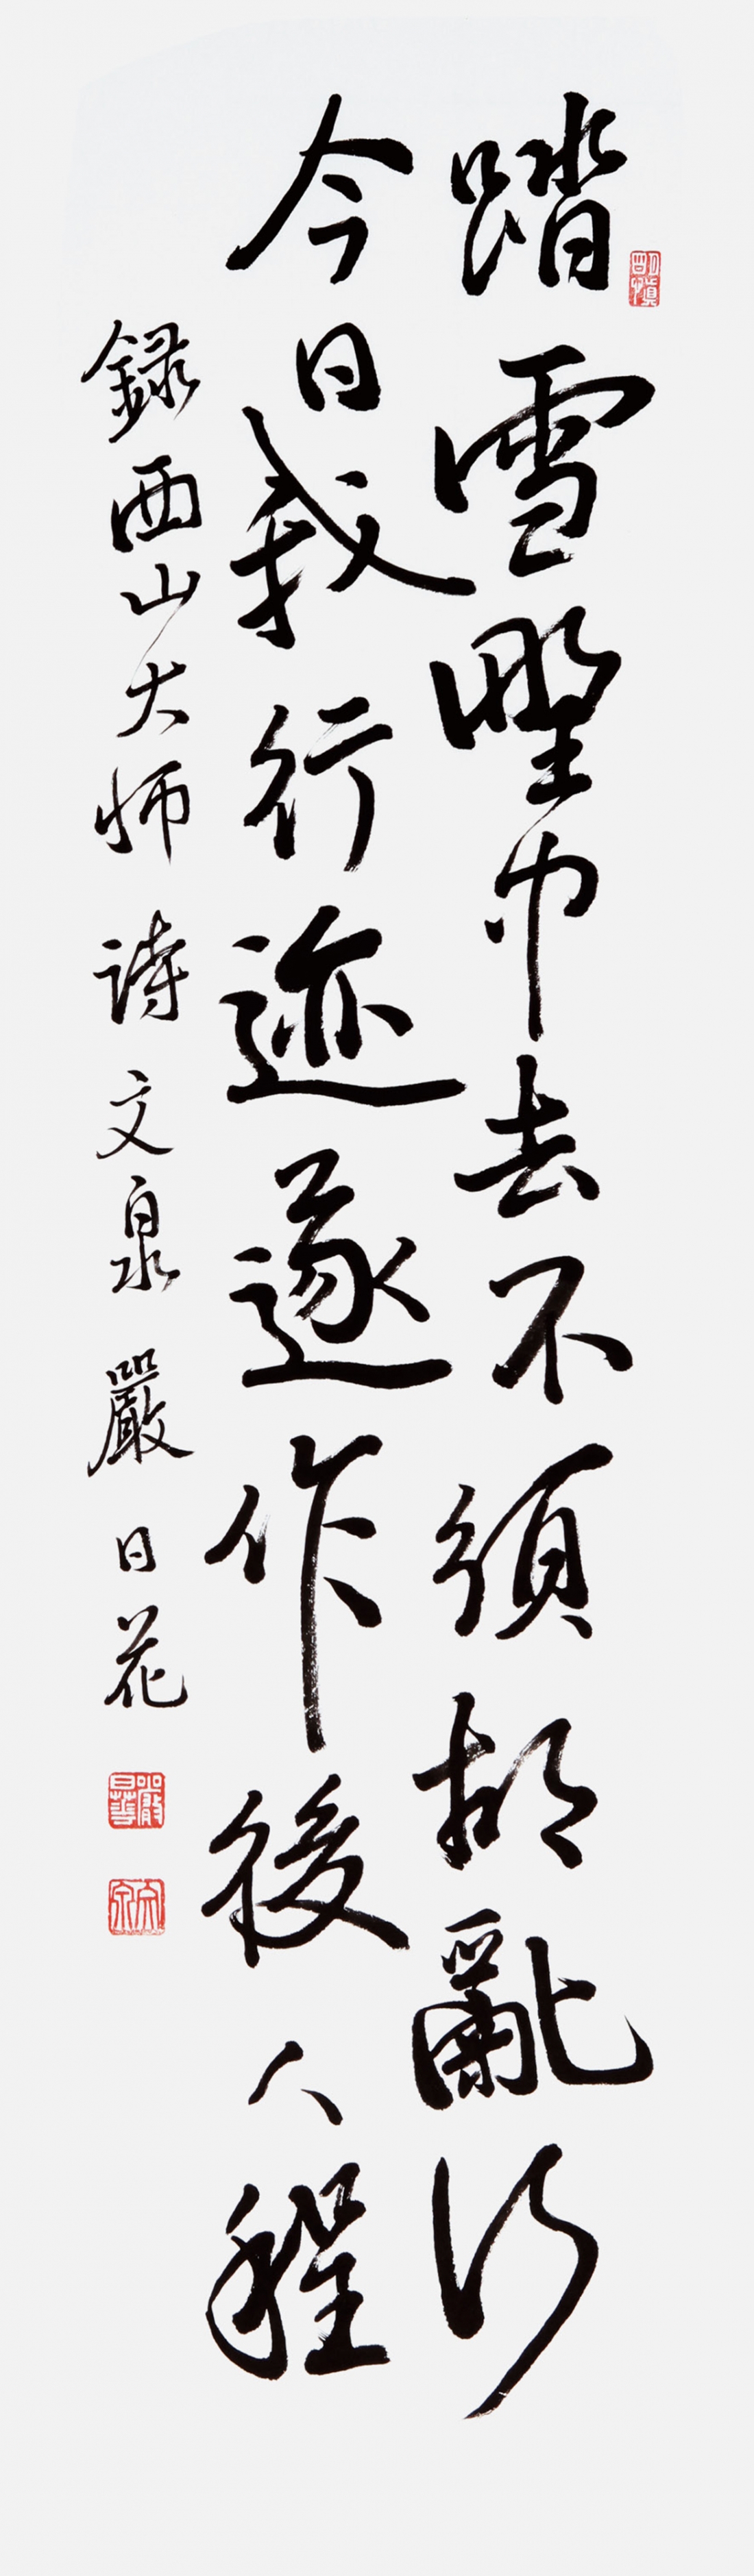 踏雪野中去不須胡亂行
今日我行迹遂作後人程
録西山大师詩 文泉 嚴日花